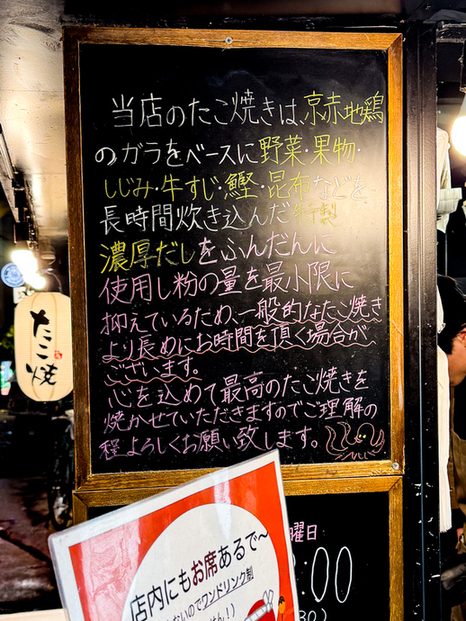 当店のたこ焼きは、京赤地鶏
のガラをベースに野菜・果物・
しじみ・牛すじ・鰹・昆布などを
長時間炊き込んだ特製
濃厚だしをふんだんに
使用し粉の量を最小限に
抑えているため、一般的なたこ焼き
より長めにお時間を頂く場合が
ございます。
心を込めて最高のたこ焼きを
焼かせていただきますのでご理解の
程よろしくお願い致します。
たこ焼
曜日
:00
店内にもお席あるで〜
ないのでワンドリンク制
せん!)